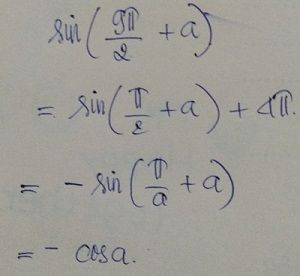 sin(9π/2 + a)
= sin(π/2 + a) + 4π.
= - sin(π/a + a)
= - cosa.